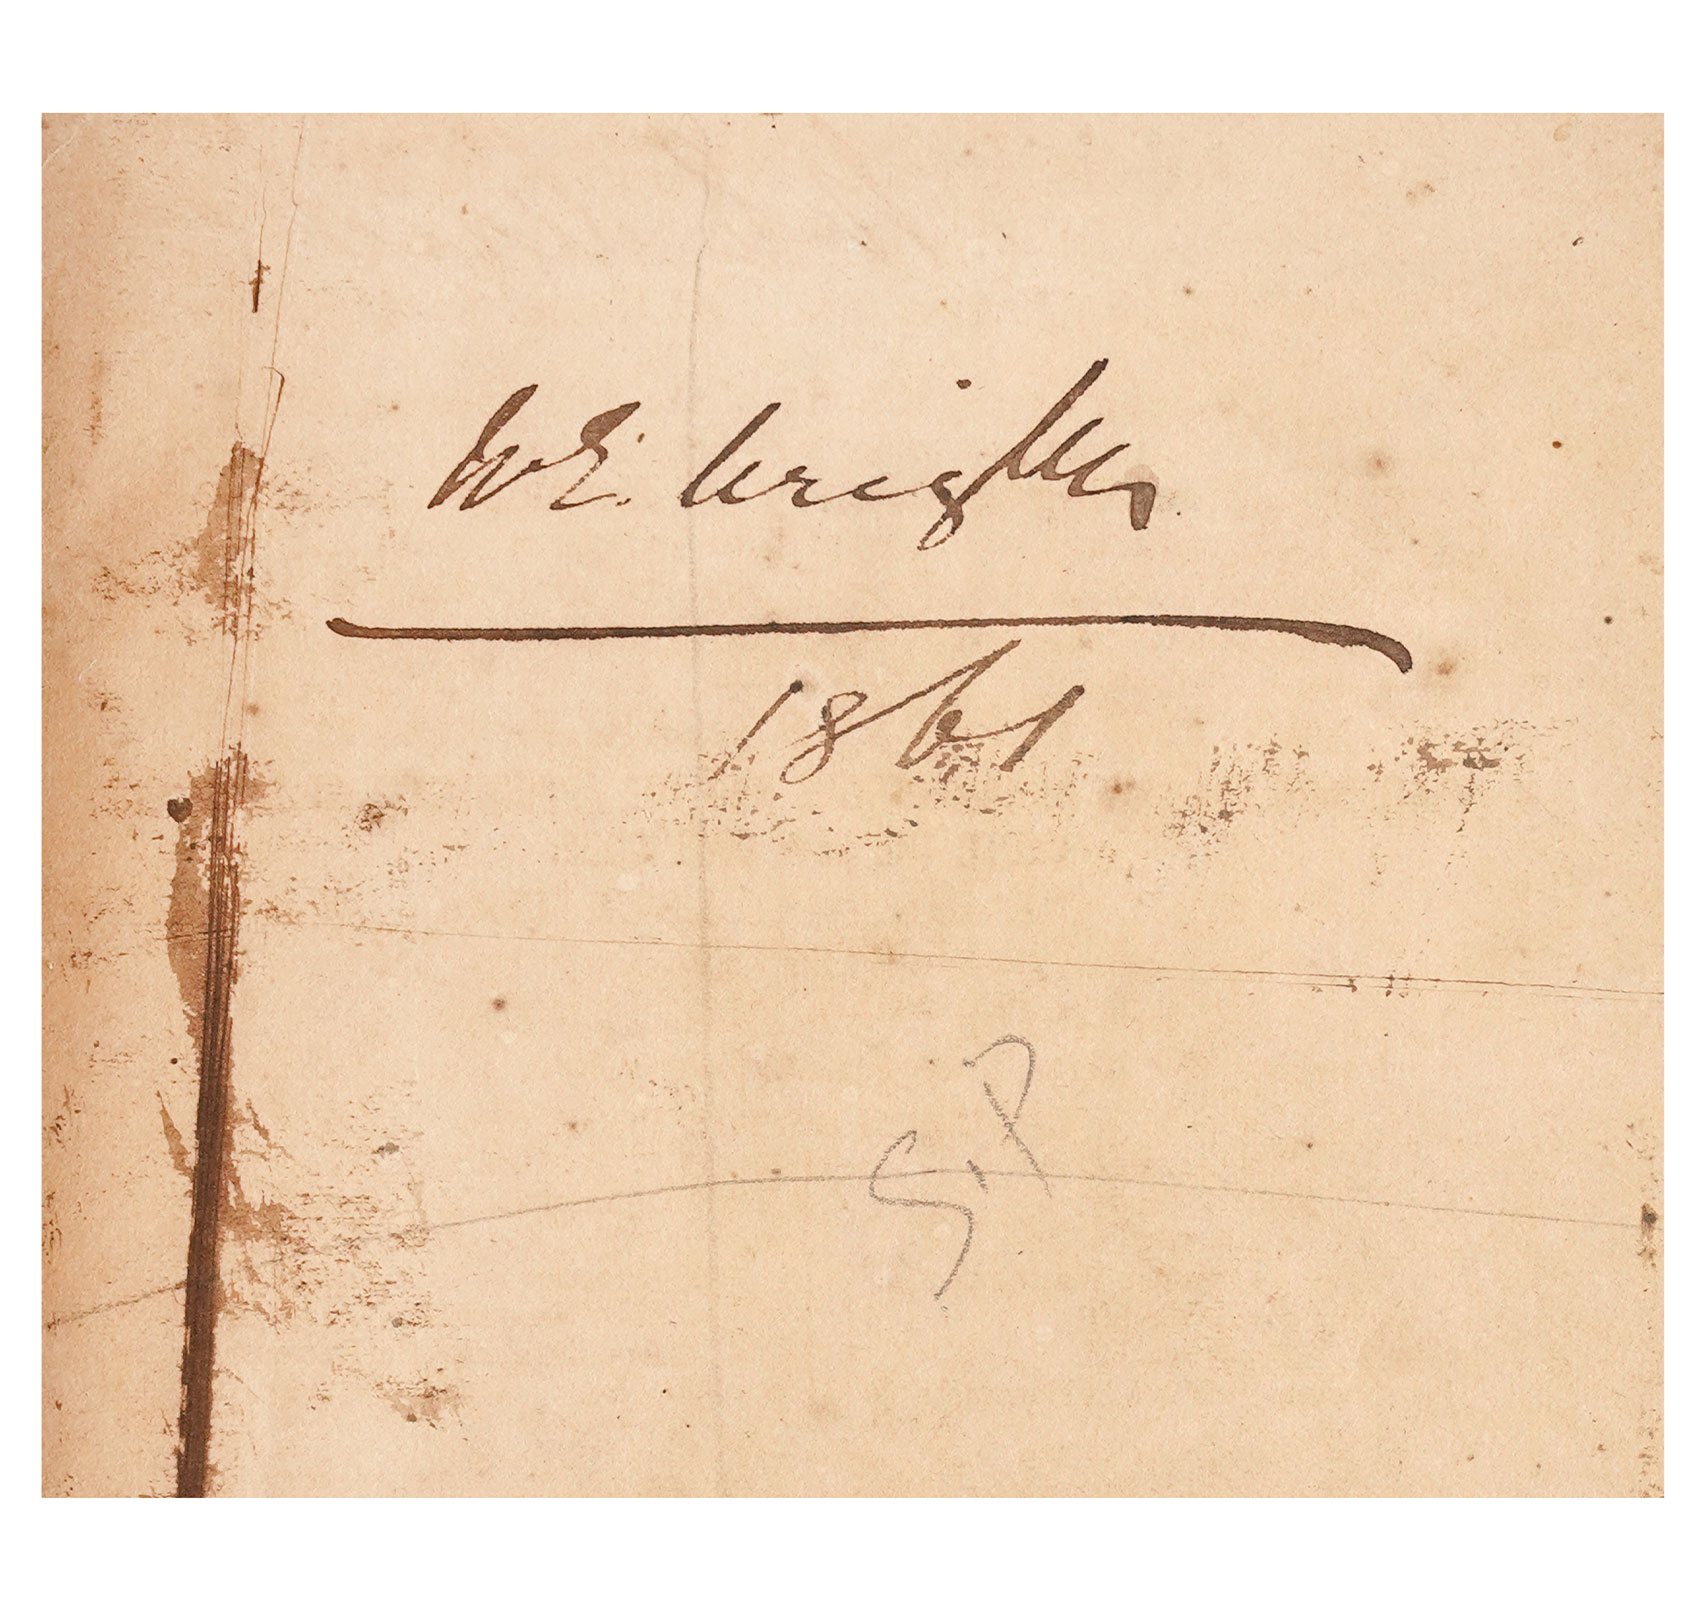 W E. Wright
1861
S.P